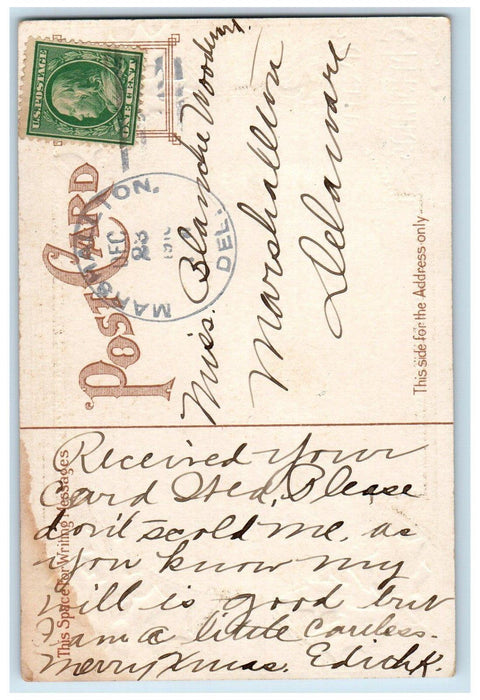 U.S. POSTAGE
ONE CENT
MARSHALLTON,
DEC
23
DEL.
POST CARD
Miss. Blanche Woodward
Marshallton
Delaware
This side for the Address only
This Space for Writing Messages
Received your
card Wed, Please
don't scold me, as
you know my
will is good but
I am a little careless.
Merry Xmas. Edith K.